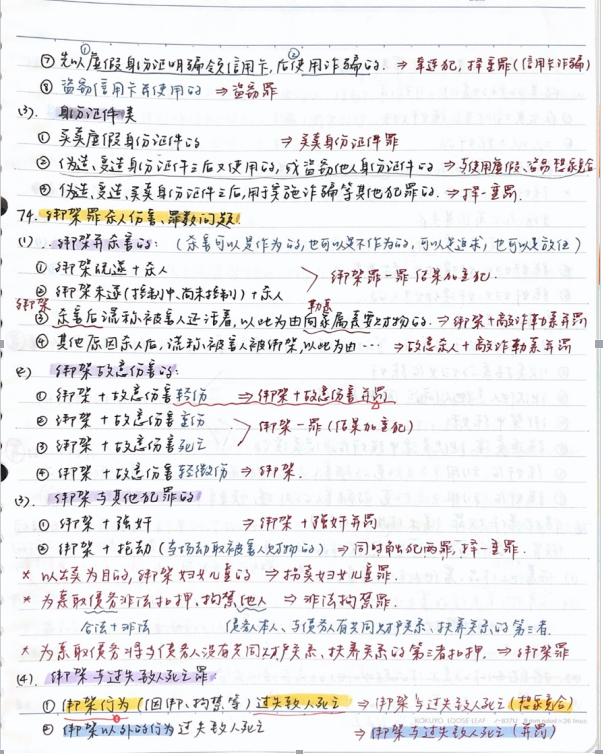 ⑦ 先以①虚假身份证明骗领信用卡,后②使用诈骗的. ⇒ 牵连犯,择重罪(信用卡诈骗)
⑧ 盗窃信用卡并使用的 ⇒ 盗窃罪
(3). 身份证件类
① 买卖虚假身份证件的 ⇒ 买卖身份证件罪
② 伪造、变造身份证件之后又使用的,或盗窃他人身份证件的 ⇒ 与使用虚假、盗窃想象竞合
③ 伪造、变造、买卖身份证件之后,用于实施诈骗等其他犯罪的. ⇒ 择一重罪.
74. 绑架罪杀人伤害、罪数问题.
(1). 绑架并杀害的: (杀害可以是作为的,也可以是不作为的,可以是追求,也可以是放任)
① 绑架既遂+杀人
② 绑架未遂(控制中、尚未控制)+杀人
绑架罪一罪 结果加重犯.
绑架 勒索
③ 杀害后谎称被害人还活着,以此为由向家属索要财物的. ⇒ 绑架+敲诈勒索并罚
④ 其他原因杀人后,谎称被害人被绑架,以此为由… ⇒ 故意杀人+敲诈勒索并罚
(2) 绑架故意伤害的:
① 绑架+故意伤害轻伤 ⇒ 绑架+故意伤害并罚
② 绑架+故意伤害重伤
③ 绑架+故意伤害死亡
绑架一罪(结果加重犯)
④ 绑架+故意伤害轻微伤 ⇒ 绑架.
(3). 绑架与其他犯罪的
① 绑架+强奸 ⇒ 绑架+强奸并罚
② 绑架+抢劫(当场劫取被害人财物的) ⇒ 同时触犯两罪,择一重罪.
* 以出卖为目的,绑架妇女儿童的 ⇒ 拐卖妇女儿童罪.
* 为索取债务非法扣押、拘禁他人 ⇒ 非法拘禁罪.
合法+非法 债务人本人、与债务人有共同财产关系、扶养关系的第三者.
* 为索取债务将与债务人没有共同财产关系、扶养关系的第三者扣押. ⇒ 绑架罪
(4). 绑架与过失致人死亡罪
① 绑架行为(因绑、拘禁等)过失致人死亡 ⇒ 绑架与过失致人死亡(想象竞合)
② 绑架以外的行为过失致人死亡 ⇒ 绑架与过失致人死亡(并罚)